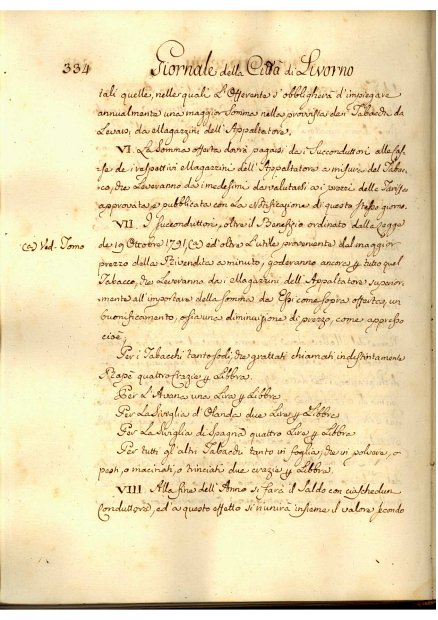 334 Giornale della Città di Livorno
tali quelle, nelle quali l'Offerente s'obbligherà d'impiegare
annualmente una maggior somma nella provvista dei Tabacchi da
Levarsi da Magazzini dell'Appaltatore.
VI. La Somma offerta dovrà pagarsi da i Succonduttori alle Cas-
se de i respettivi Magazzini dell'Appaltatore a misura del Tabac-
co, che Leveranno da i medesimi da valutarsi a i prezzi delle Tariffe
approvata e pubblicata con la Notificazione di questo stesso giorno.
VII. I succonduttori, oltre il Benefizio ordinato dalla Legge
(a) Ved. Tomo
de 19 Ottobre 1791 (a) ed oltre l'utile proveniente dal maggior
prezzo della Rivendita a minuto, goderanno ancora p tutto quel
Tabacco, che Leveranno da i Magazzini dell'Appaltatore superior-
mente all'importare della somma da Essi come sopra offerta, un
buonificamento, o sia una diminuzione di prezzo, come appresso
cioè,
Per i Tabacchi tanto sodi, che grattati chiamati indistintamente
Rapè quattro crazie p Libbra.
Per l'Avana una Lira p Libbra
Per La Siviglia d'Olanda due Lire p Libbra
Per La Siviglia di Spagna quattro Lire p Libbra
Per tutti gl'altri Tabacchi tanto in foglia, che in polvere, o
pesti, o macinati, o trinciati due crazie p Libbra.
VIII. Alla fine dell'Anno si farà il Saldo con ciaschedun
Conduttore, ed a questo effetto si riunirà insieme il valore secondo